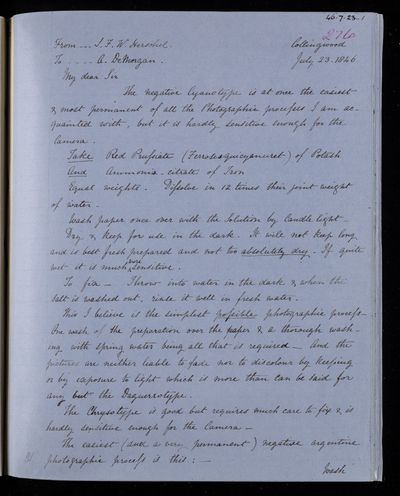 46.7.23.1
276
From --- J. F. W. Herschel. Collingwood
To ---- A. DeMorgan. July 23. 1846
My dear Sir
The negative Cyanotype is at once the easiest
& most permanent of all the Photographic processes I am ac-
quainted with, but it is hardly sensitive enough for the
Camera.
Take Red Prussiate (Ferrosesquicyanuret) of Potash
And Ammonia-citrate of Iron
Equal weights. Dissolve in 12 times their joint weight
of water.
Wash paper once over with the Solution by Candle light.
Dry & keep for use in the dark. It will not keep long
and is best fresh prepared and not too absolutely dry. If quite
wet it is much more sensitive.
To fix - Throw into water in the dark & when the
Salt is washed out, rinse it well in fresh water.
This I believe is the simplest possible photographic process -
One wash of the preparation over the paper & a thorough wash-
ing with spring water being all that is required - And the
pictures are neither liable to fade nor to discolour by keeping
or by exposure to light which is more than can be said for
any but the Daguerreotype.
The Chrysotype is good but requires much care to fix & is
hardly sensitive enough for the Camera -
The easiest (and a very permanent) negative argentine
photographic process is this: -
Wash